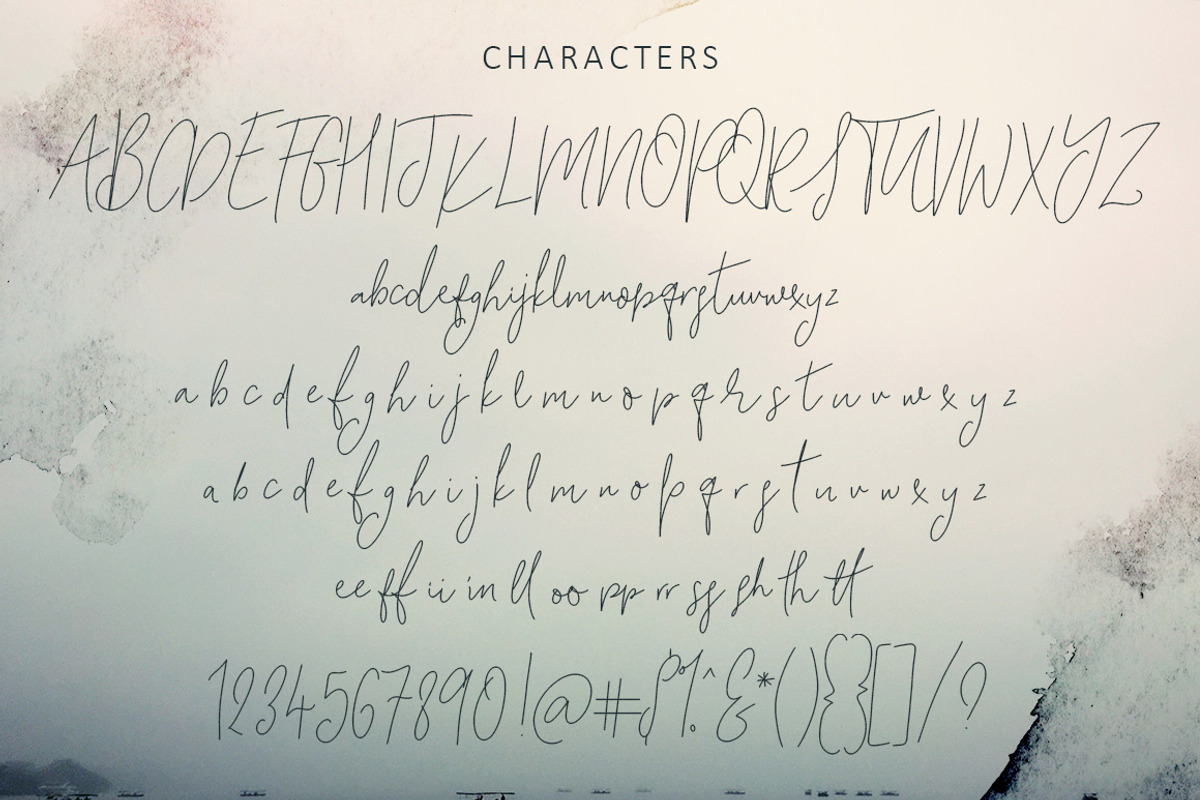 CHARACTERS
ABCDEFGHIJKLMNOPQRSTUVWXYZ
abcdefghijklmnopqrstuvwxyz
a b c d e f g h i j k l m n o p q r s t u v w x y z
a b c d e f g h i j k l m n o p q r s t u v w x y z
ee ff ii in ll oo pp rr ss sh th tt
1234567890!@#$%^&*(){}[]/?